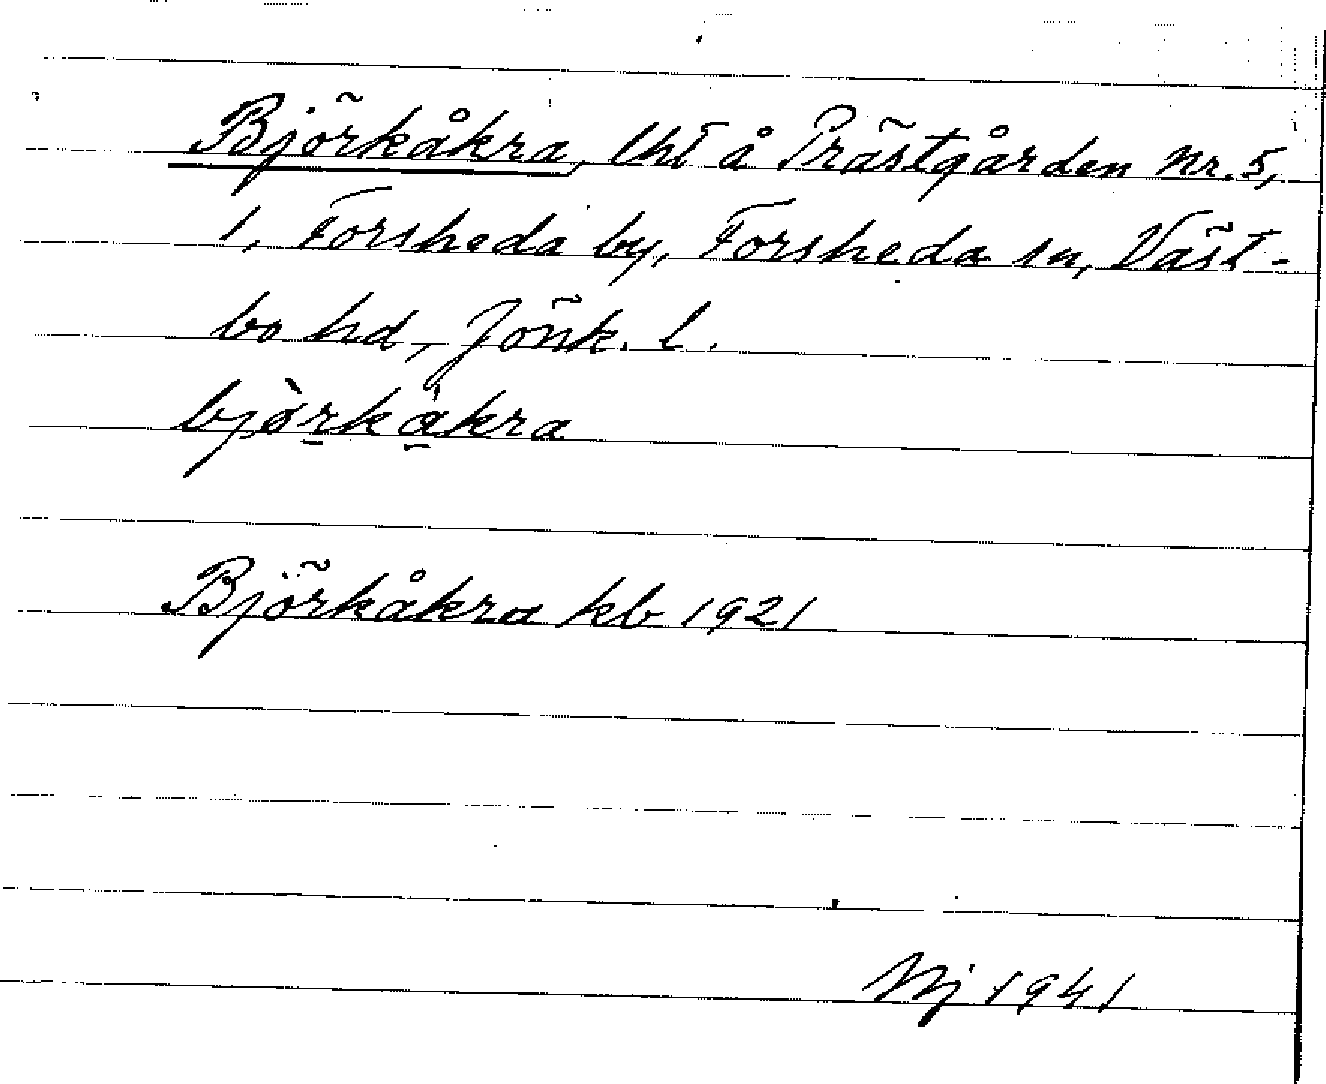 Björkåkra, lht å Prästgården Nr. 5,
1, Forsheda by, Forsheda sn, Väst-
bo hd, Jönk. l.
bjòrkåkra
Björkåkra kb 1921
Nj 1941